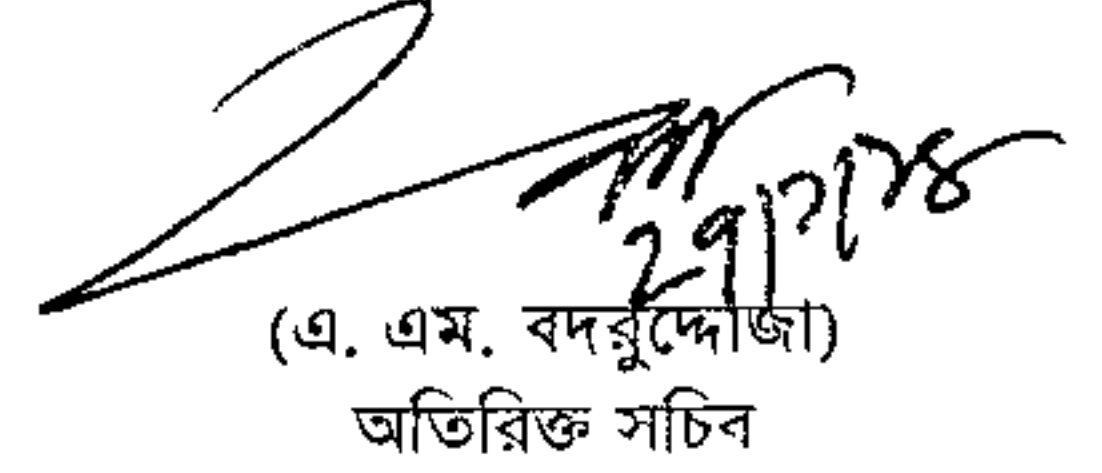 ২৭/১/১৪
(এ. এম. বদরুদ্দোজা)
অতিরিক্ত সচিব